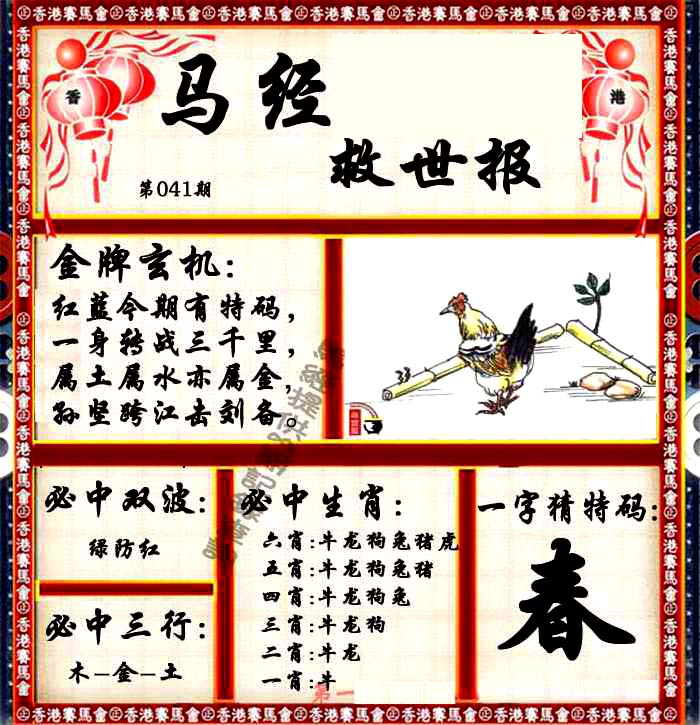 香港賽馬會
香
港
马经
救世报
第041期
金牌玄机：
红蓝今期有特码，
一身转战三千里，
属土属水亦属金，
孙坚跨江击刘备。
必中双波：
绿防红
必中三行：
木–金–土
必中生肖：
六肖:牛龙狗兔猪虎
五肖:牛龙狗兔猪
四肖:牛龙狗兔
三肖:牛龙狗
二肖:牛龙
一肖:牛
第一
一字猜特码：
春